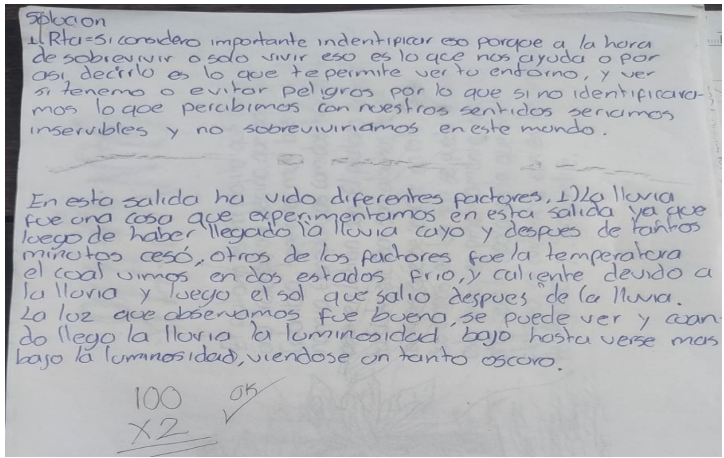 Solocion
1) Rta=Si considero importante indentificar eso porque a la hora
de sobrevivir o solo vivir eso es lo que nos ayuda o por
asi decirlo es lo que te permite ver tu entorno, y ver
si tenemo o evitar peligros por lo que si no identificara-
mos lo que percibimos con nuestros sentidos seriamos
inservibles y no sobreviviriamos en este mundo.
En esta salida ha vido diferentes factores, 1) La lluvia
fue una cosa que experimentamos en esta salida ya que
luego de haber llegado la lluvia cayo y despues de tantos
minutos cesó, otros de los factores fue la temperatura
el coal vimos en dos estados frio, y caliente devido a
la lluvia y luego el sol que salio despues de la lluvia.
La luz que observamos fue bueno, se puede ver y cuan-
do llego la lluvia la luminosidad bajo hasta verse mas
bajo la luminosidad, viendose un tanto oscuro.
100 OK
x2